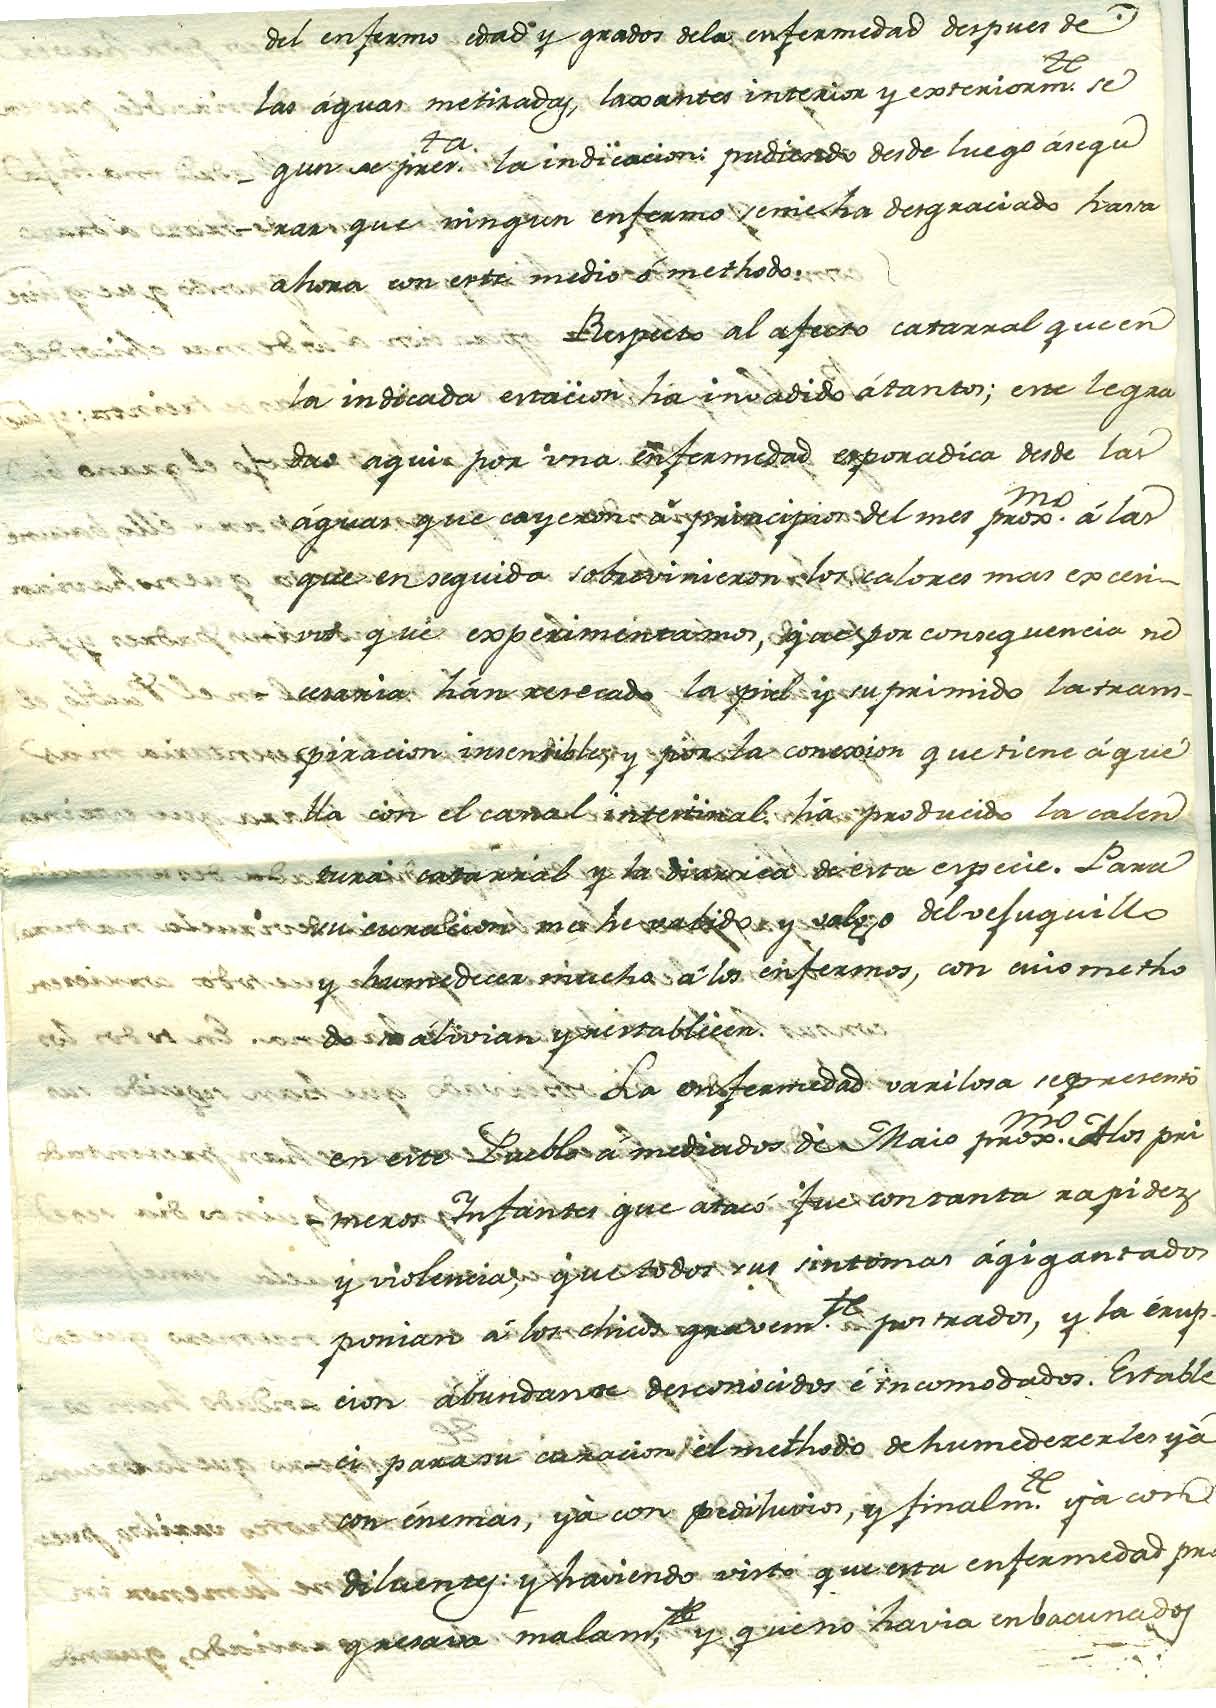 del enfermo edad y grados dela enfermedad despues de
las águas metiradas, laxantes interior y exteriorm.te se
gun se pres.ta la indicacion: pudiendo desde luego ásegu
-rar que ningun enfermo seme ha desgraciado hasta
ahora con este medio ó methodo.
Respecto al afecto catarral que en
la indicada estacion ha invadido átantos; este le gra
duo aqui por una enfermedad esporadica desde las
águas que cayeron á principios del mes prox.mo á las
que en seguida sobrevinieron los calores mas excesi-
vos que experimentamos, que por consequencia ne
cesaria hán resecado la piel y suprimido la trans-
piracion insensible, y por la conexion que tiene áque
lla con el canal intestinal há producido la calen
tura catarral y la diarrea de esta especie. Para
su curacion me he valido y valgo del vefuquillo
y humedecer mucho á los enfermos, con cuio metho
do se álivian y restablecen.
La enfermedad varilosa se presentó
en este Pueblo á mediados de Maio prox.mo A los pri
-meros Infantes que atacó fue con tanta rapidez
y violencia, que todos sus sintomas ágigantados
ponian á los chicos gravem.te postrados, y la érup-
cion ábundante desconocidos é incomodados. Estable
-ci para su curacion el methodo de humedecerles yá
con énemas, yá con pediluvios, y finalm.te yá con
diluentes: y haviendo visto que esta enfermedad pro
gresava malam.te, y que no havia enbacunados